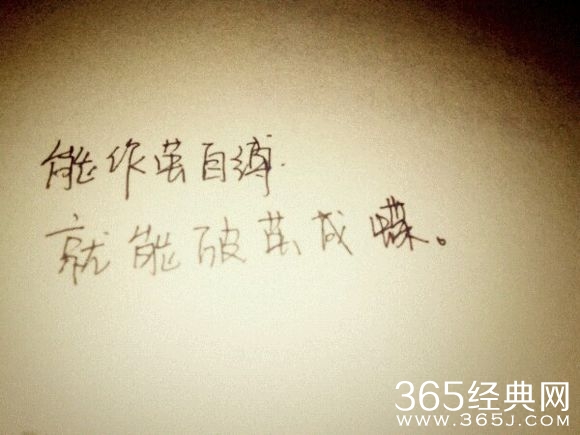 能作茧自缚
就能破茧成蝶。
365经典网
WWW.365J.COM